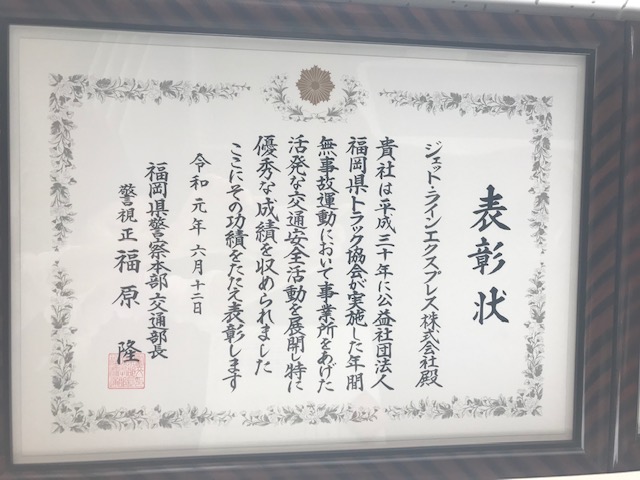 表彰状
ジェット・ラインエクスプレス株式会社殿
貴社は平成三十年に公益社団法人
福岡県トラック協会が実施した年間
無事故運動において事業所をあげた
活発な交通安全活動を展開し特に
優秀な成績を収められました
ここにその功績をたたえ表彰します
令和元年六月十二日
福岡県警察本部交通部長
警視正 福原 隆